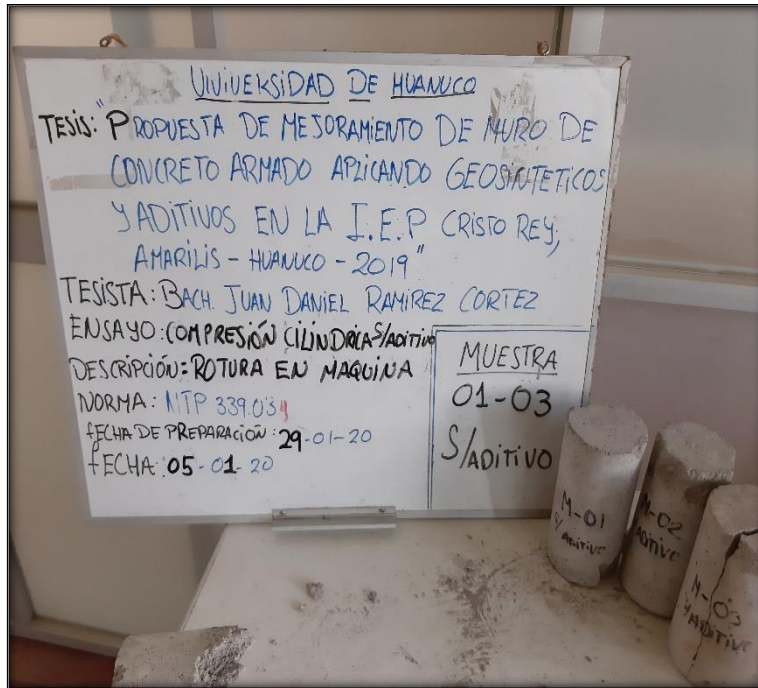 UNIVERSIDAD DE HUANUCO
TESIS: "PROPUESTA DE MEJORAMIENTO DE MURO DE
CONCRETO ARMADO APLICANDO GEOSINTETICOS
Y ADITIVOS EN LA I.E.P CRISTO REY,
AMARILIS - HUANUCO - 2019"
TESISTA: BACH. JUAN DANIEL RAMIREZ CORTEZ
ENSAYO: COMPRESIÓN CILINDRICA S/ADITIVO
DESCRIPCIÓN: ROTURA EN MAQUINA
NORMA: NTP 339.034
FECHA DE PREPARACIÓN: 29-01-20
FECHA: 05-01-20
MUESTRA
01-03
S/ADITIVO
M-01
S/ADITIVO
M-02
ADITIVO
M-03
S/ADITIVO